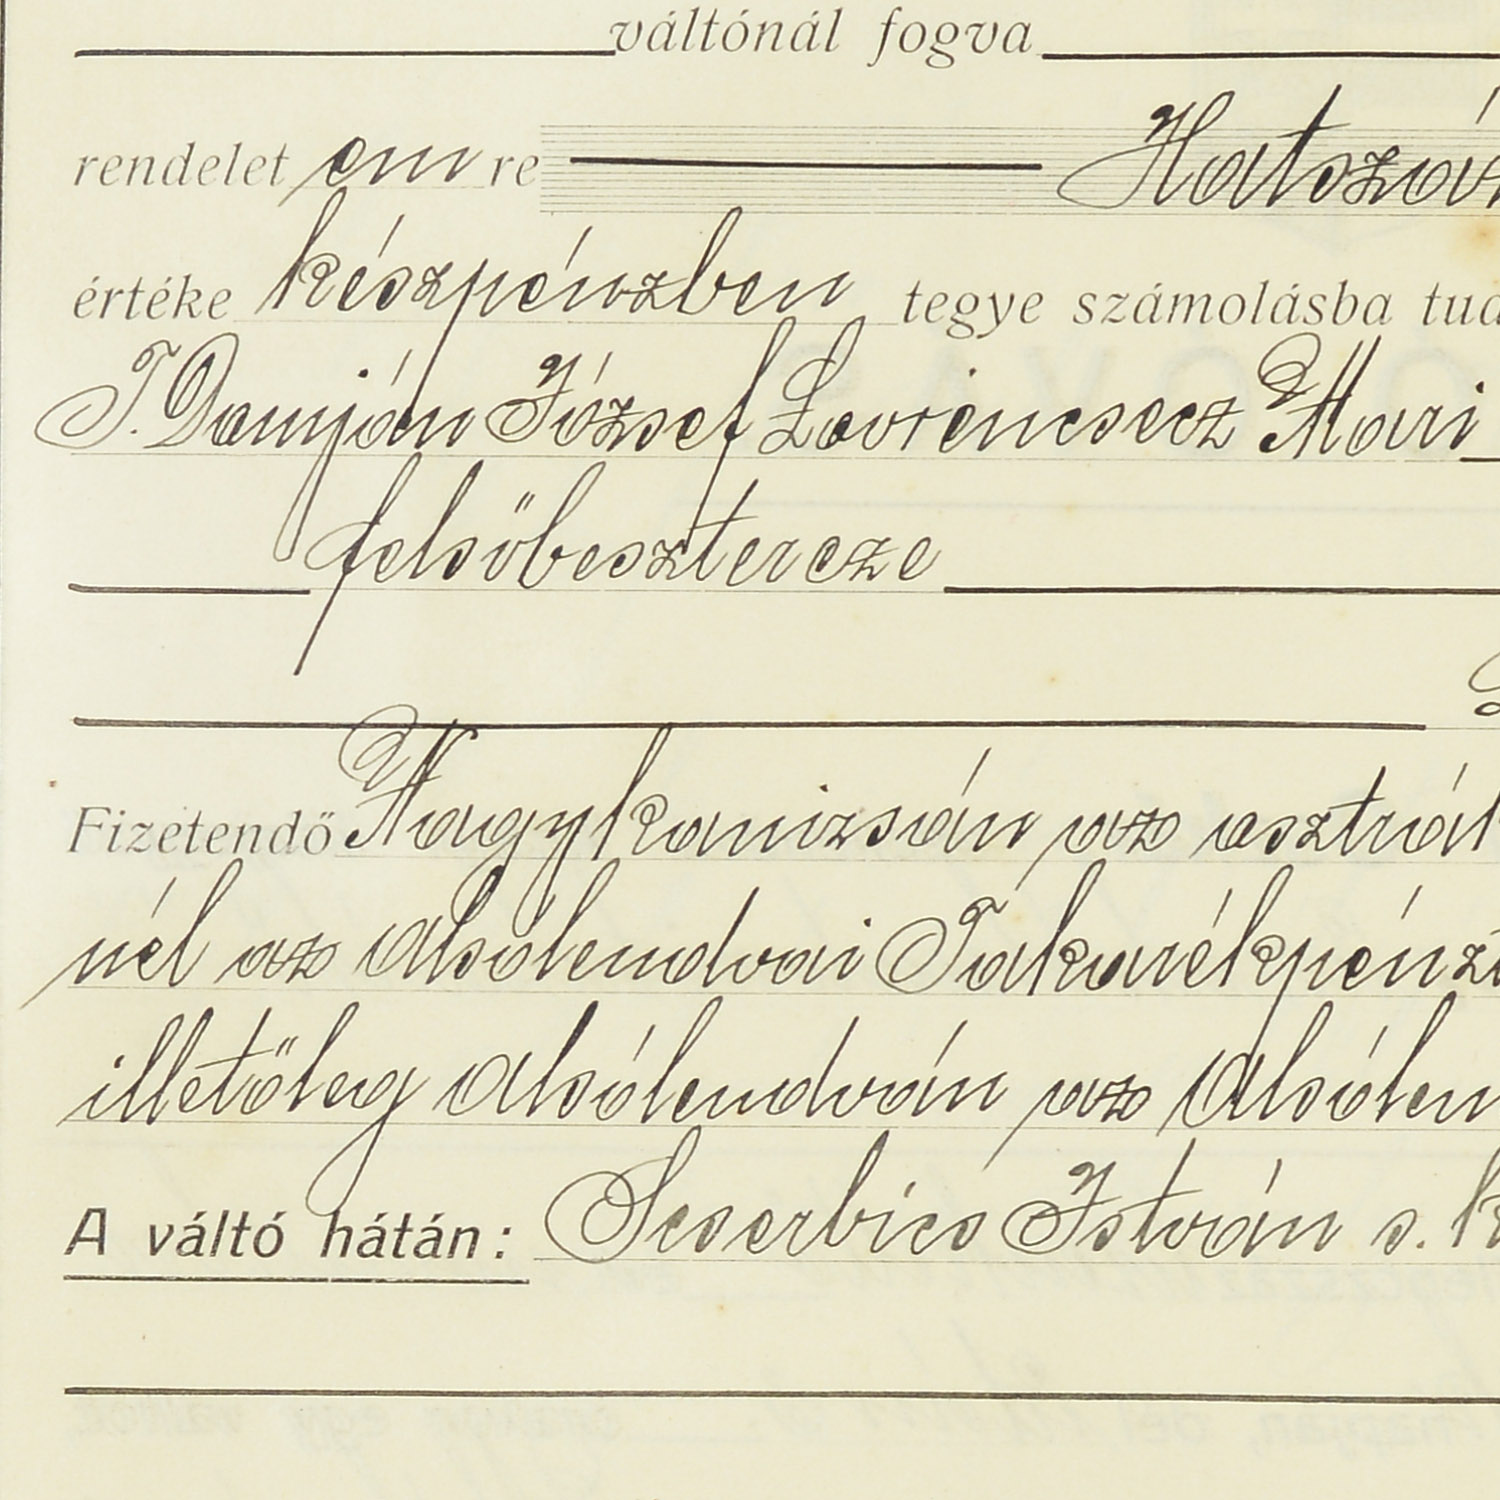 váltónál fogva
rendelet em re Hatszáz
értéke készpénzben tegye számolásba tud
T. Damján József Lavrencsecz Mari
felsőbesztercze
Fizetendő Nagykanizsán az osztrák
nél az alsólendvai Takarékpénzt
illetőleg Alsólendván az Alsólen
A váltó hátán: Scserbics István s. k